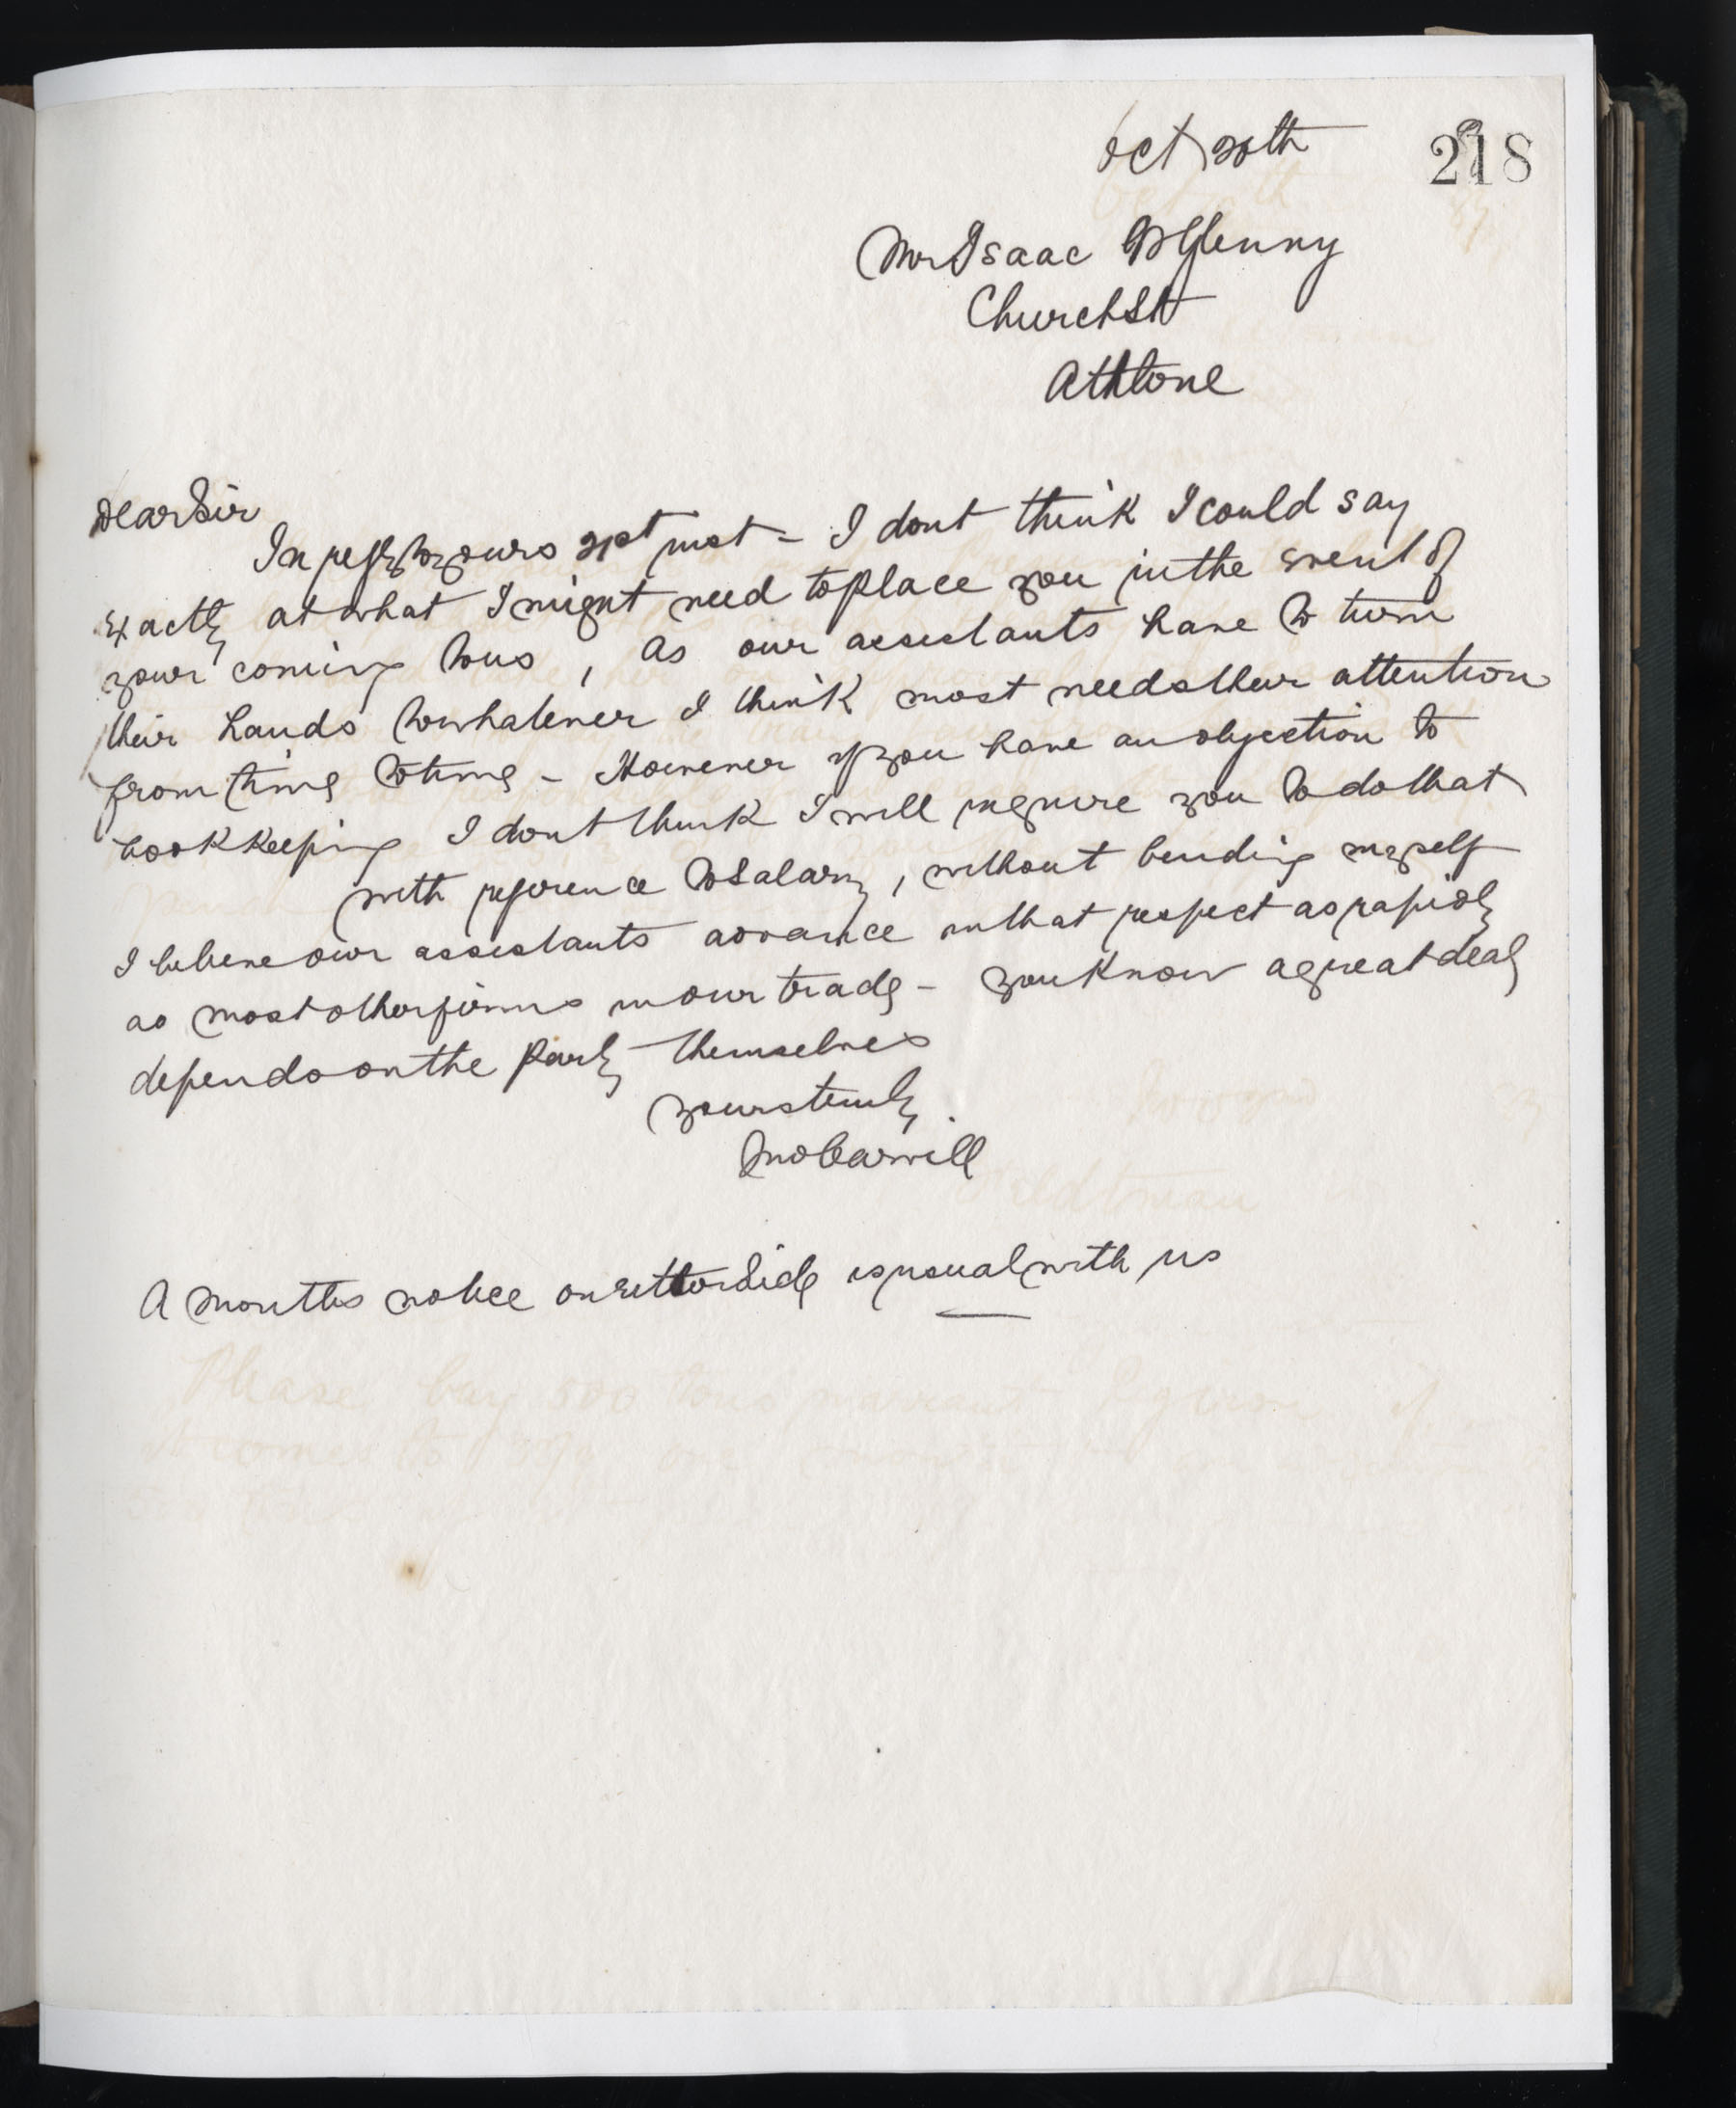 Oct 20th
218
Mr Isaac Glenny
Church St
Athlone
Dear Sir
In reply to yours 21st inst - I dont think I could say
exactly at what I might need to place you in the event of
your coming to us, As our assistants have to turn
their hands to whatever I think most needs their attention
from time to time - However if you have an objection to
bookkeeping I dont think I will require you to do that
With reference to Salary, without bending myself
I believe our assistants advance in that respect as rapidly
as most other firms in our trade - you know a great deal
depends on the Party themselves
Yours truly
A months notice on either side is usual with us
Please buy 500 tons warrants